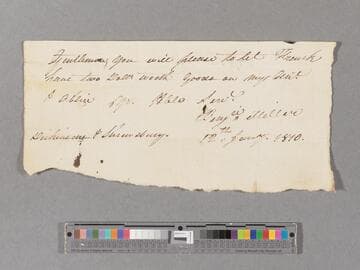 Gentlemen, you will please to let French
have two Dolls worth Goods on my Acct
& oblige yr. Hble Servt.
Benjn Stiller
Dickinson & Shrewsbury. 12th Jany. 1810.